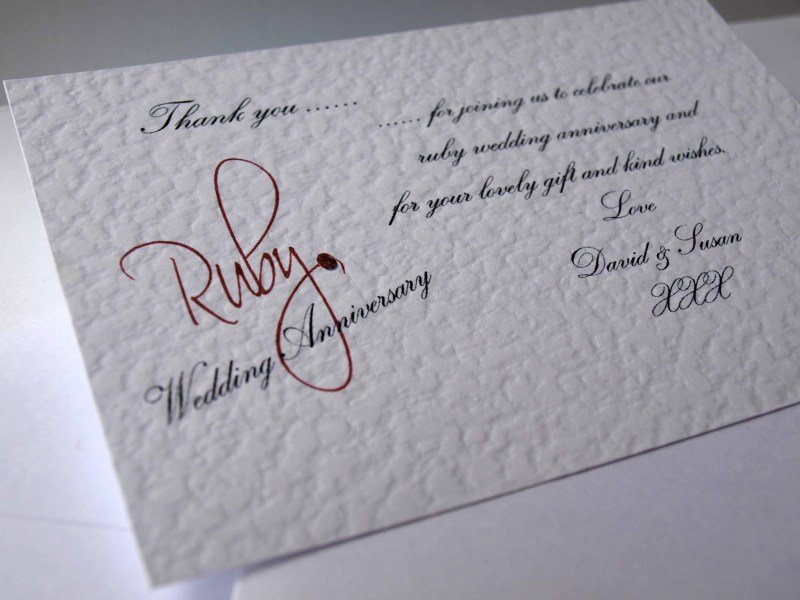 Thank you ......
...... for joining us to celebrate our
ruby wedding anniversary and
for your lovely gift and kind wishes.
Love
David & Susan
XXX
Ruby
Wedding Anniversary